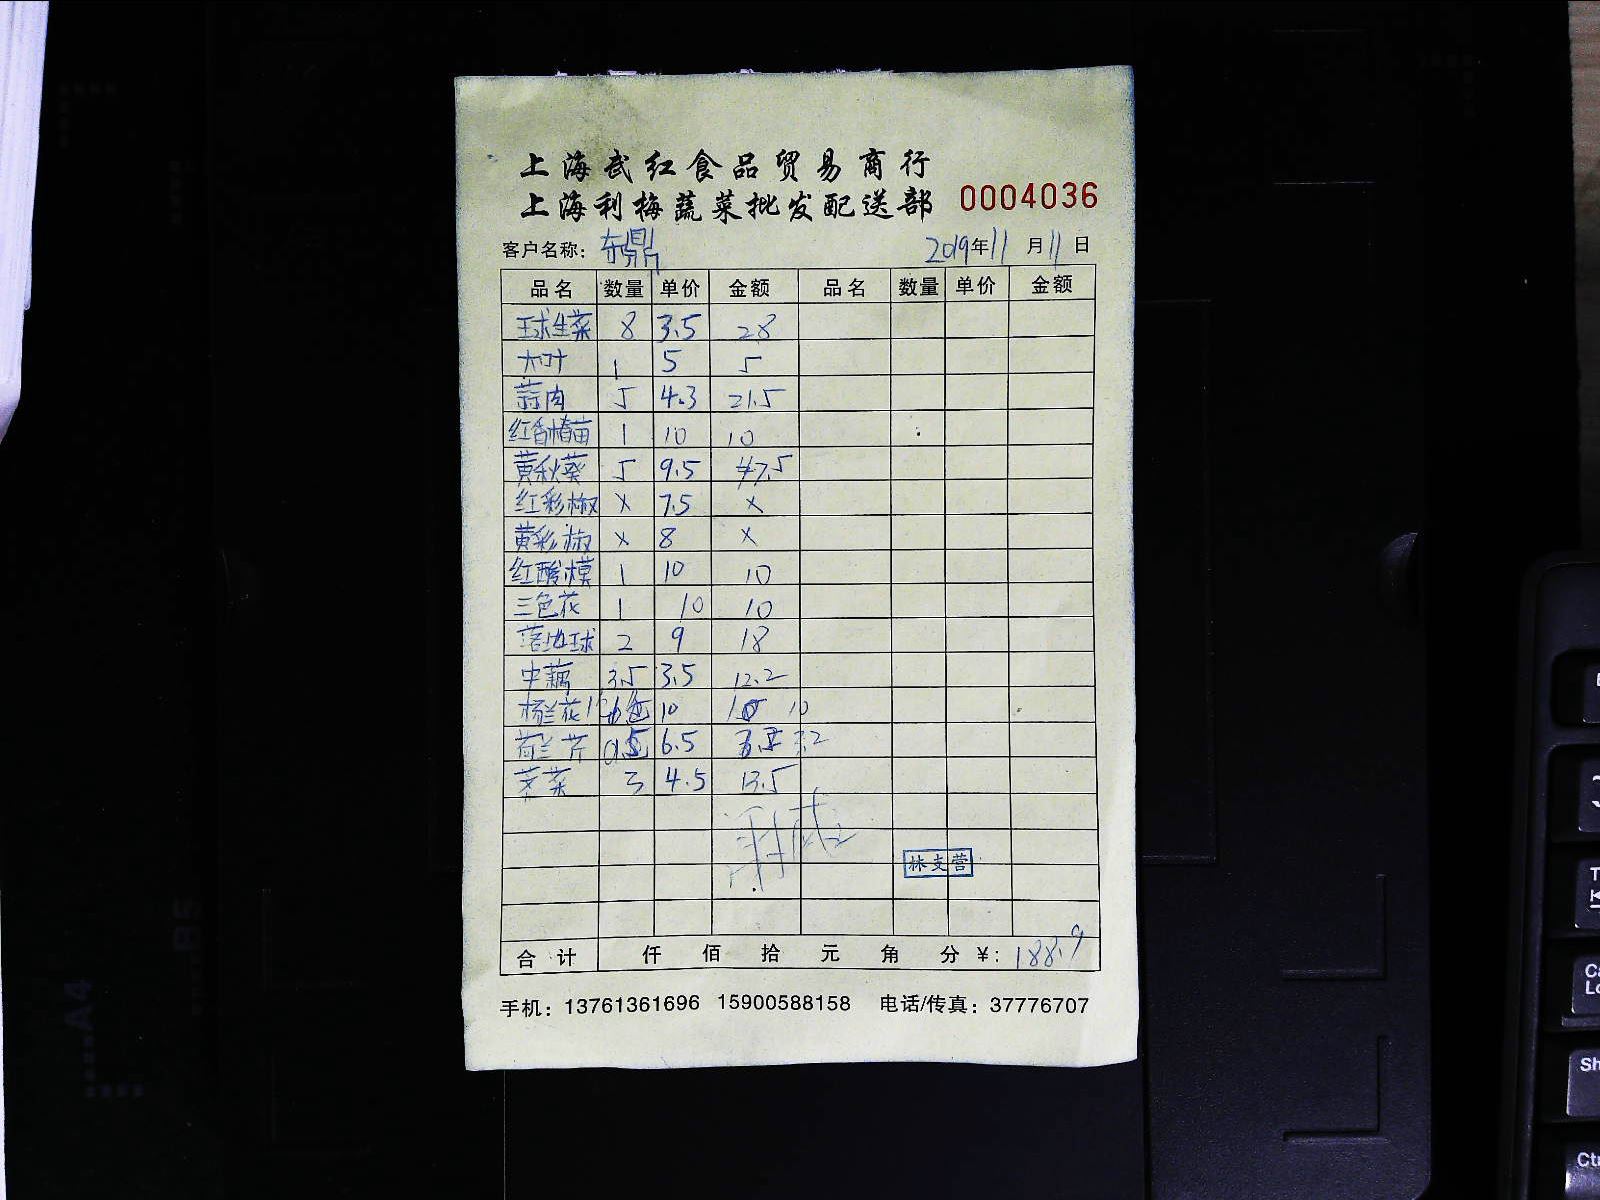 上海武红食品贸易商行
上海利梅蔬菜批发配送部 0004036
客户名称: 东鼎 2019年11月11日
品名 数量 单价 金额 品名 数量 单价 金额
球生菜 8 3.5 28
大叶 1 5 5
蒜肉 5 4.3 21.5
红香椿苗 1 10 10
黄秋葵 5 9.5 47.5
红彩椒 x 7.5 x
黄彩椒 x 8 x
红酸模 1 10 10
三色花 1 10 10
落地球 2 9 18
中藕 3.5 3.5 12.2
杨兰花 1 10 10
荷兰芹 0.5 6.5 3.2
菜 3 4.5 13.5
林支营
合计 仟 佰 拾 元 角 分 ¥: 188.9
手机: 13761361696 15900588158 电话/传真: 37776707
A4
B5